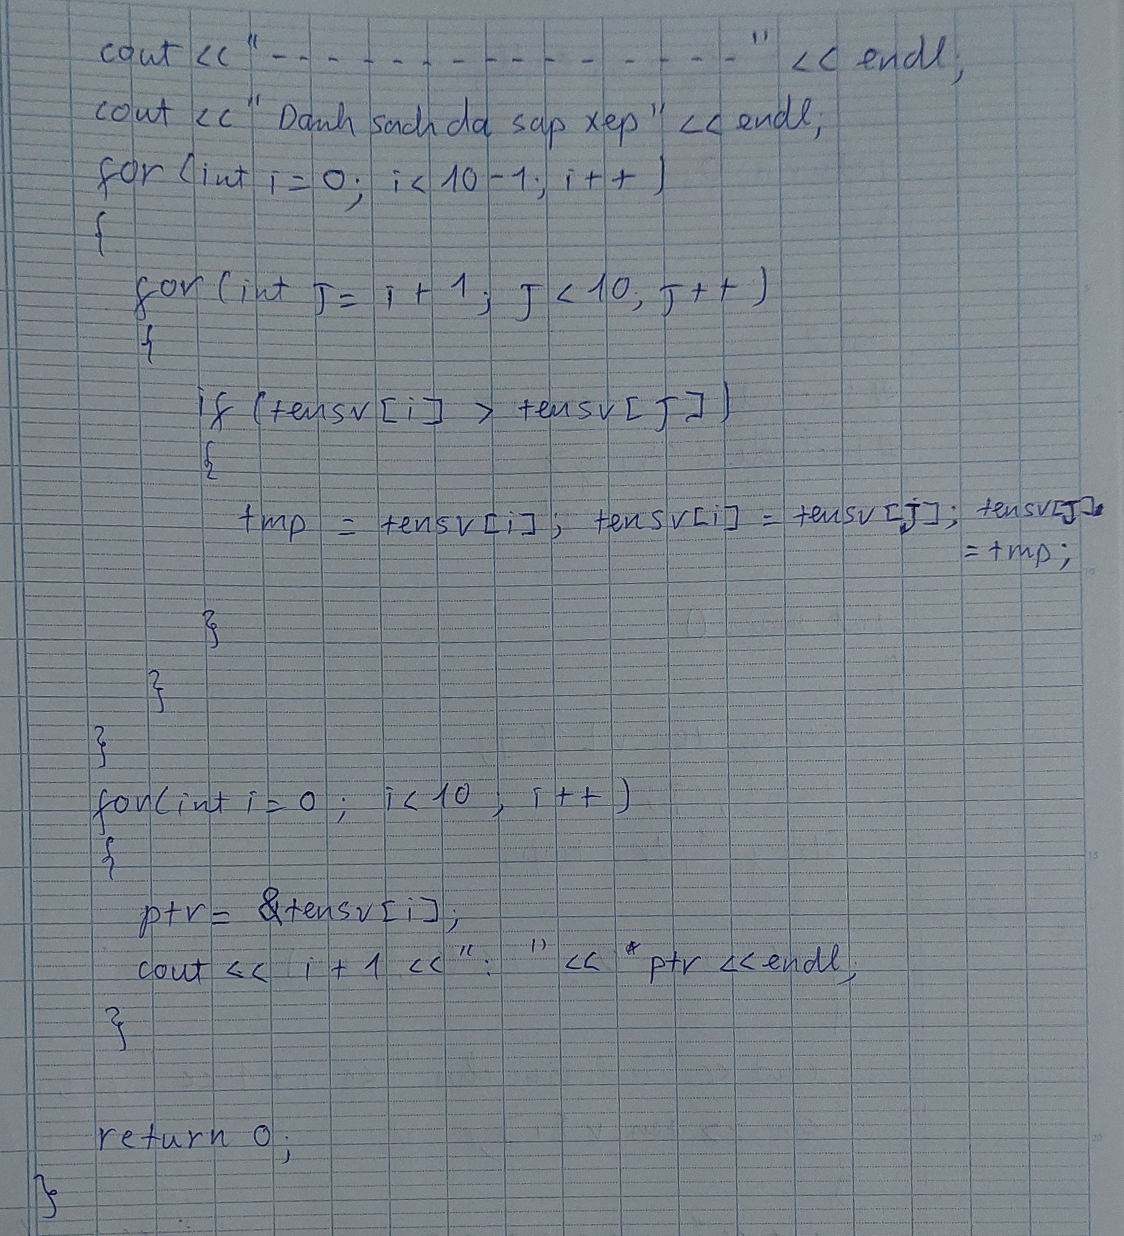 cout << "- - - - - - - - - - - -" << endl;
cout << "Danh sach da sap xep" << endl;
for (int i = 0; i < 10 - 1; i++)
{
for (int j = i + 1; j < 10; j++)
{
if (tensv[i] > tensv[j])
{
tmp = tensv[i]; tensv[i] = tensv[j]; tensv[j]
= tmp;
}
}
}
for (int i = 0; i < 10; i++)
{
ptr = &tensv[i];
cout << i + 1 << ": " << *ptr << endl;
}
return 0;
}